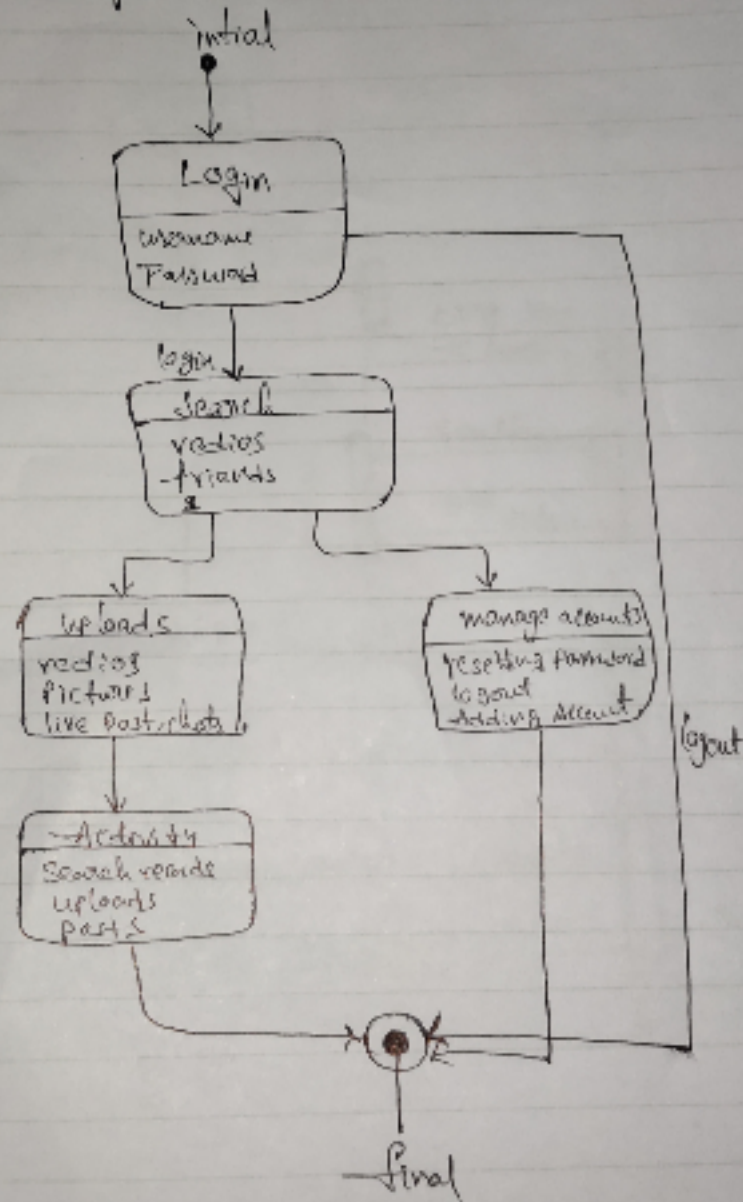 intial
Login
username
Password
login
Search
vedios
friends
uploads
vedios
Pictures
live Post,
manage accounts
resetting Password
logout
Adding Account
logout
Activity
Search
uploads
posts
final